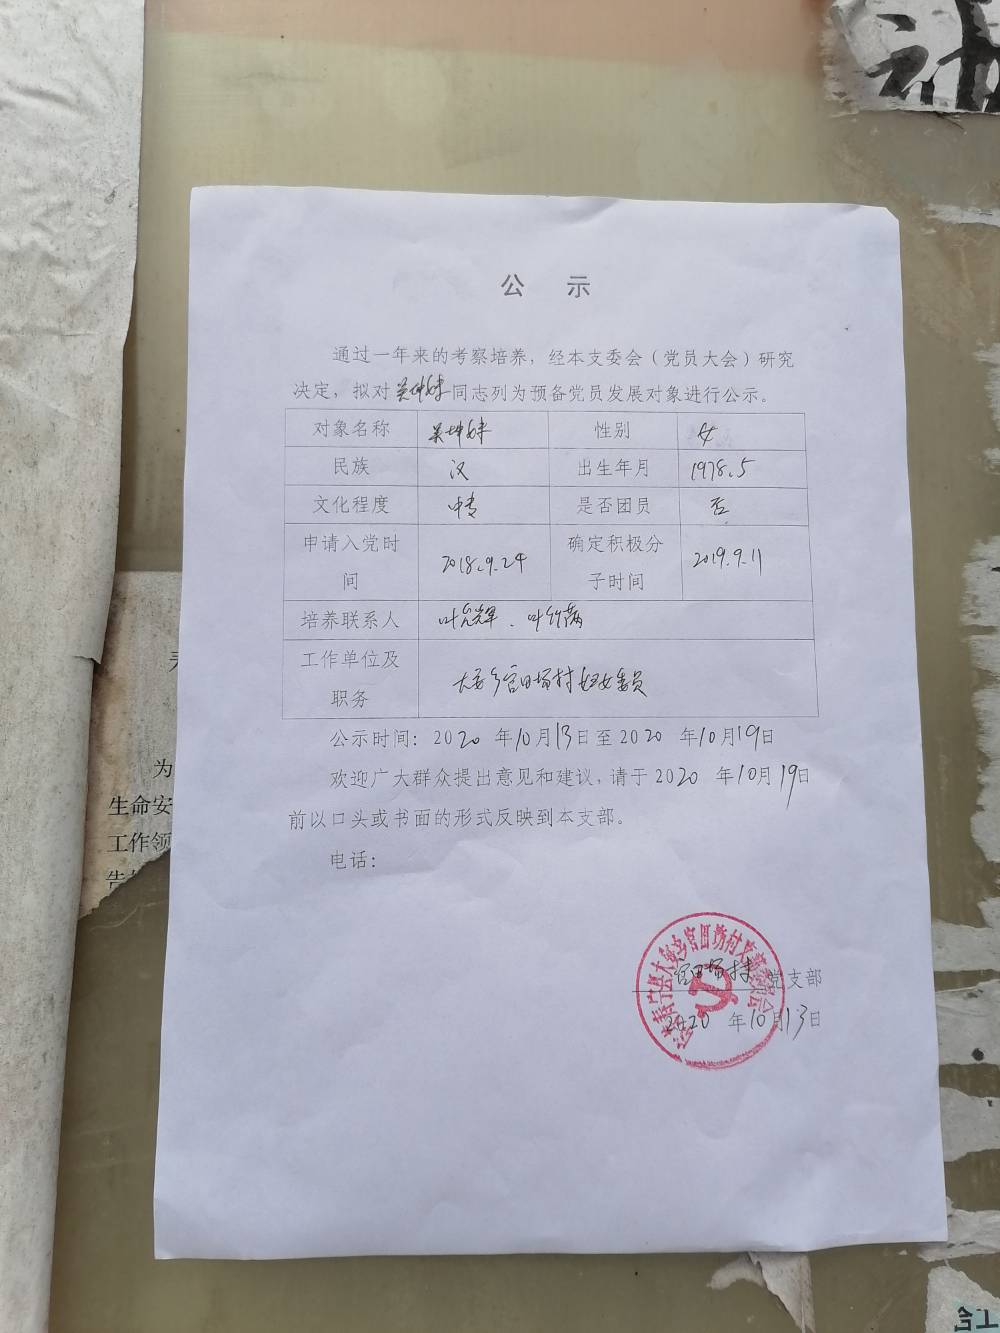 补
公 示
通过一年来的考察培养，经本支委会（党员大会）研究
决定，拟对吴坤妹同志列为预备党员发展对象进行公示。
对象名称 吴坤妹 性别 女
民族 汉 出生年月 1978.5
文化程度 中专 是否团员 否
申请入党时间 2018.9.24 确定积极分子时间 2019.9.11
培养联系人 叶 辉、叶
工作单位及职务 大安乡官田场村妇女委员
公示时间：2020 年10月13日至2020 年10月19日
欢迎广大群众提出意见和建议，请于2020 年10月19日
前以口头或书面的形式反映到本支部。
电话：
官田场村 党支部
2020 年10月13日
为
生命安
工作领
告